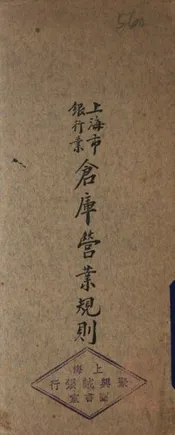 560
上海市
銀行業
倉庫營業規則
上海
聚興誠銀行
圖書室